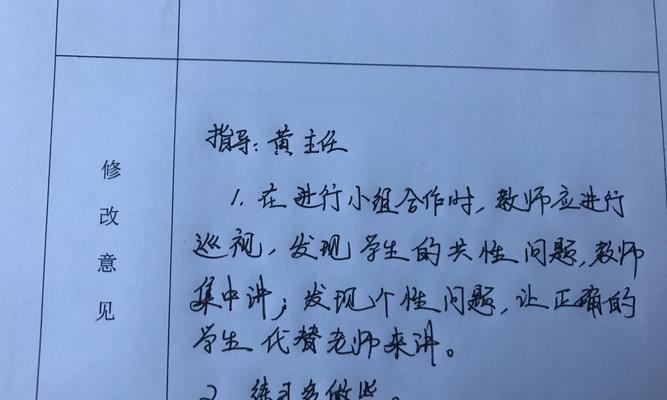 修改意见
指导：黄主任
1. 在进行小组合作时，教师应进行
巡视，发现学生的共性问题，教师
集中讲；发现个性问题，让正确的
学生代替老师来讲。
2. 练习多做些。